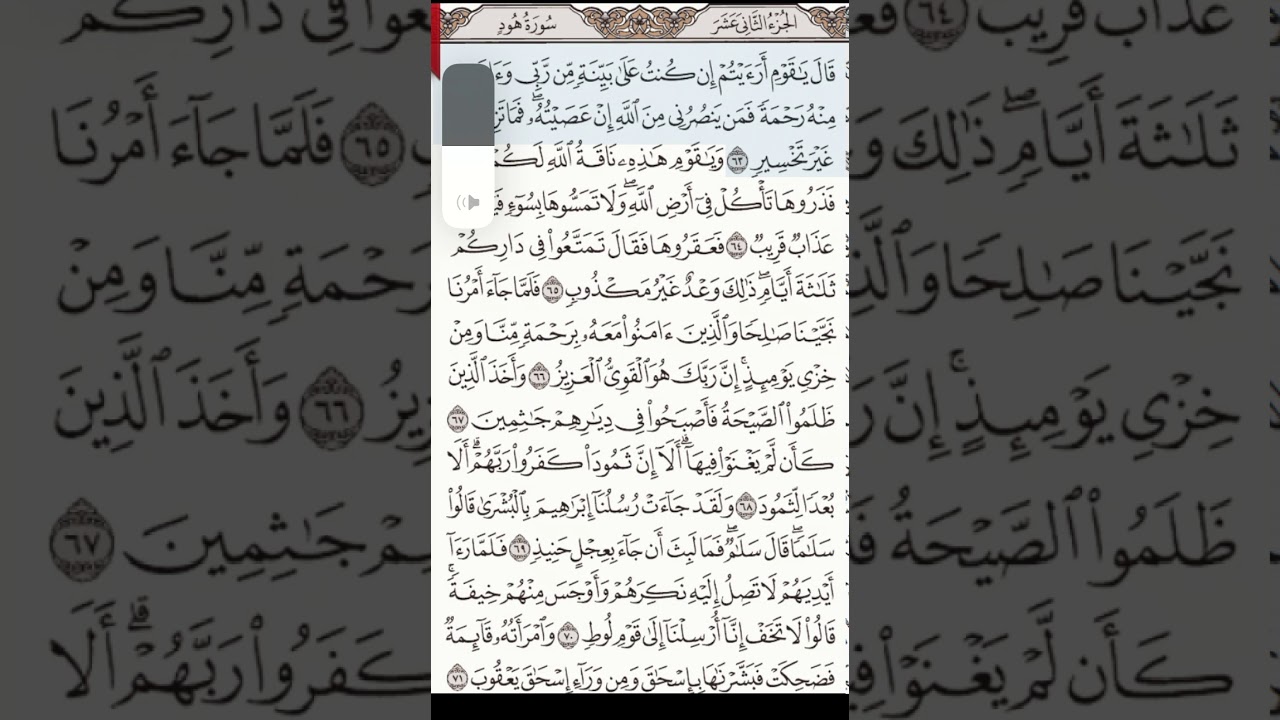 الجُزْءُ الثَّانِي عَشَرَ
سُورَةُ هُودٍ
قَالَ يَٰقَوْمِ أَرَءَيْتُمْ إِن كُنتُ عَلَىٰ بَيِّنَةٍ مِّن رَّبِّي
مِنْهُ رَحْمَةً فَمَن يَنصُرُنِي مِنَ ٱللَّهِ إِنْ عَصَيْتُهُۥۖ
غَيْرَ تَخْسِيرٍ ٦٣ وَيَٰقَوْمِ هَٰذِهِۦ نَاقَةُ ٱللَّهِ
فَذَرُوهَا تَأْكُلْ فِيٓ أَرْضِ ٱللَّهِۖ وَلَا تَمَسُّوهَا بِسُوٓءٍ
عَذَابٌ قَرِيبٌ ٦٤ فَعَقَرُوهَا فَقَالَ تَمَتَّعُوا۟ فِي دَارِكُمْ
ثَلَٰثَةَ أَيَّامٍۖ ذَٰلِكَ وَعْدٌ غَيْرُ مَكْذُوبٍ ٦٥ فَلَمَّا جَآءَ أَمْرُنَا
نَجَّيْنَا صَٰلِحًا وَٱلَّذِينَ ءَامَنُوا۟ مَعَهُۥ بِرَحْمَةٍ مِّنَّا وَمِنْ
خِزْيِ يَوْمِئِذٍۚ إِنَّ رَبَّكَ هُوَ ٱلْقَوِيُّ ٱلْعَزِيزُ ٦٦ وَأَخَذَ ٱلَّذِينَ
ظَلَمُوا۟ ٱلصَّيْحَةُ فَأَصْبَحُوا۟ فِي دِيَٰرِهِمْ جَٰثِمِينَ ٦٧
كَأَن لَّمْ يَغْنَوْا۟ فِيهَآۗ أَلَآ إِنَّ ثَمُودَا۟ كَفَرُوا۟ رَبَّهُمْۗ أَلَا
بُعْدًا لِّثَمُودَ ٦٨ وَلَقَدْ جَآءَتْ رُسُلُنَآ إِبْرَٰهِيمَ بِٱلْبُشْرَىٰ قَالُوا۟
سَلَٰمًاۖ قَالَ سَلَٰمٌۖ فَمَا لَبِثَ أَن جَآءَ بِعِجْلٍ حَنِيذٍ ٦٩ فَلَمَّا رَءَآ
أَيْدِيَهُمْ لَا تَصِلُ إِلَيْهِ نَكِرَهُمْ وَأَوْجَسَ مِنْهُمْ خِيفَةًۚ
قَالُوا۟ لَا تَخَفْ إِنَّآ أُرْسِلْنَآ إِلَىٰ قَوْمِ لُوطٍ ٧٠ وَٱمْرَأَتُهُۥ قَآئِمَةٌ
فَضَحِكَتْ فَبَشَّرْنَٰهَا بِإِسْحَٰقَ وَمِن وَرَآءِ إِسْحَٰقَ يَعْقُوبَ ٧١